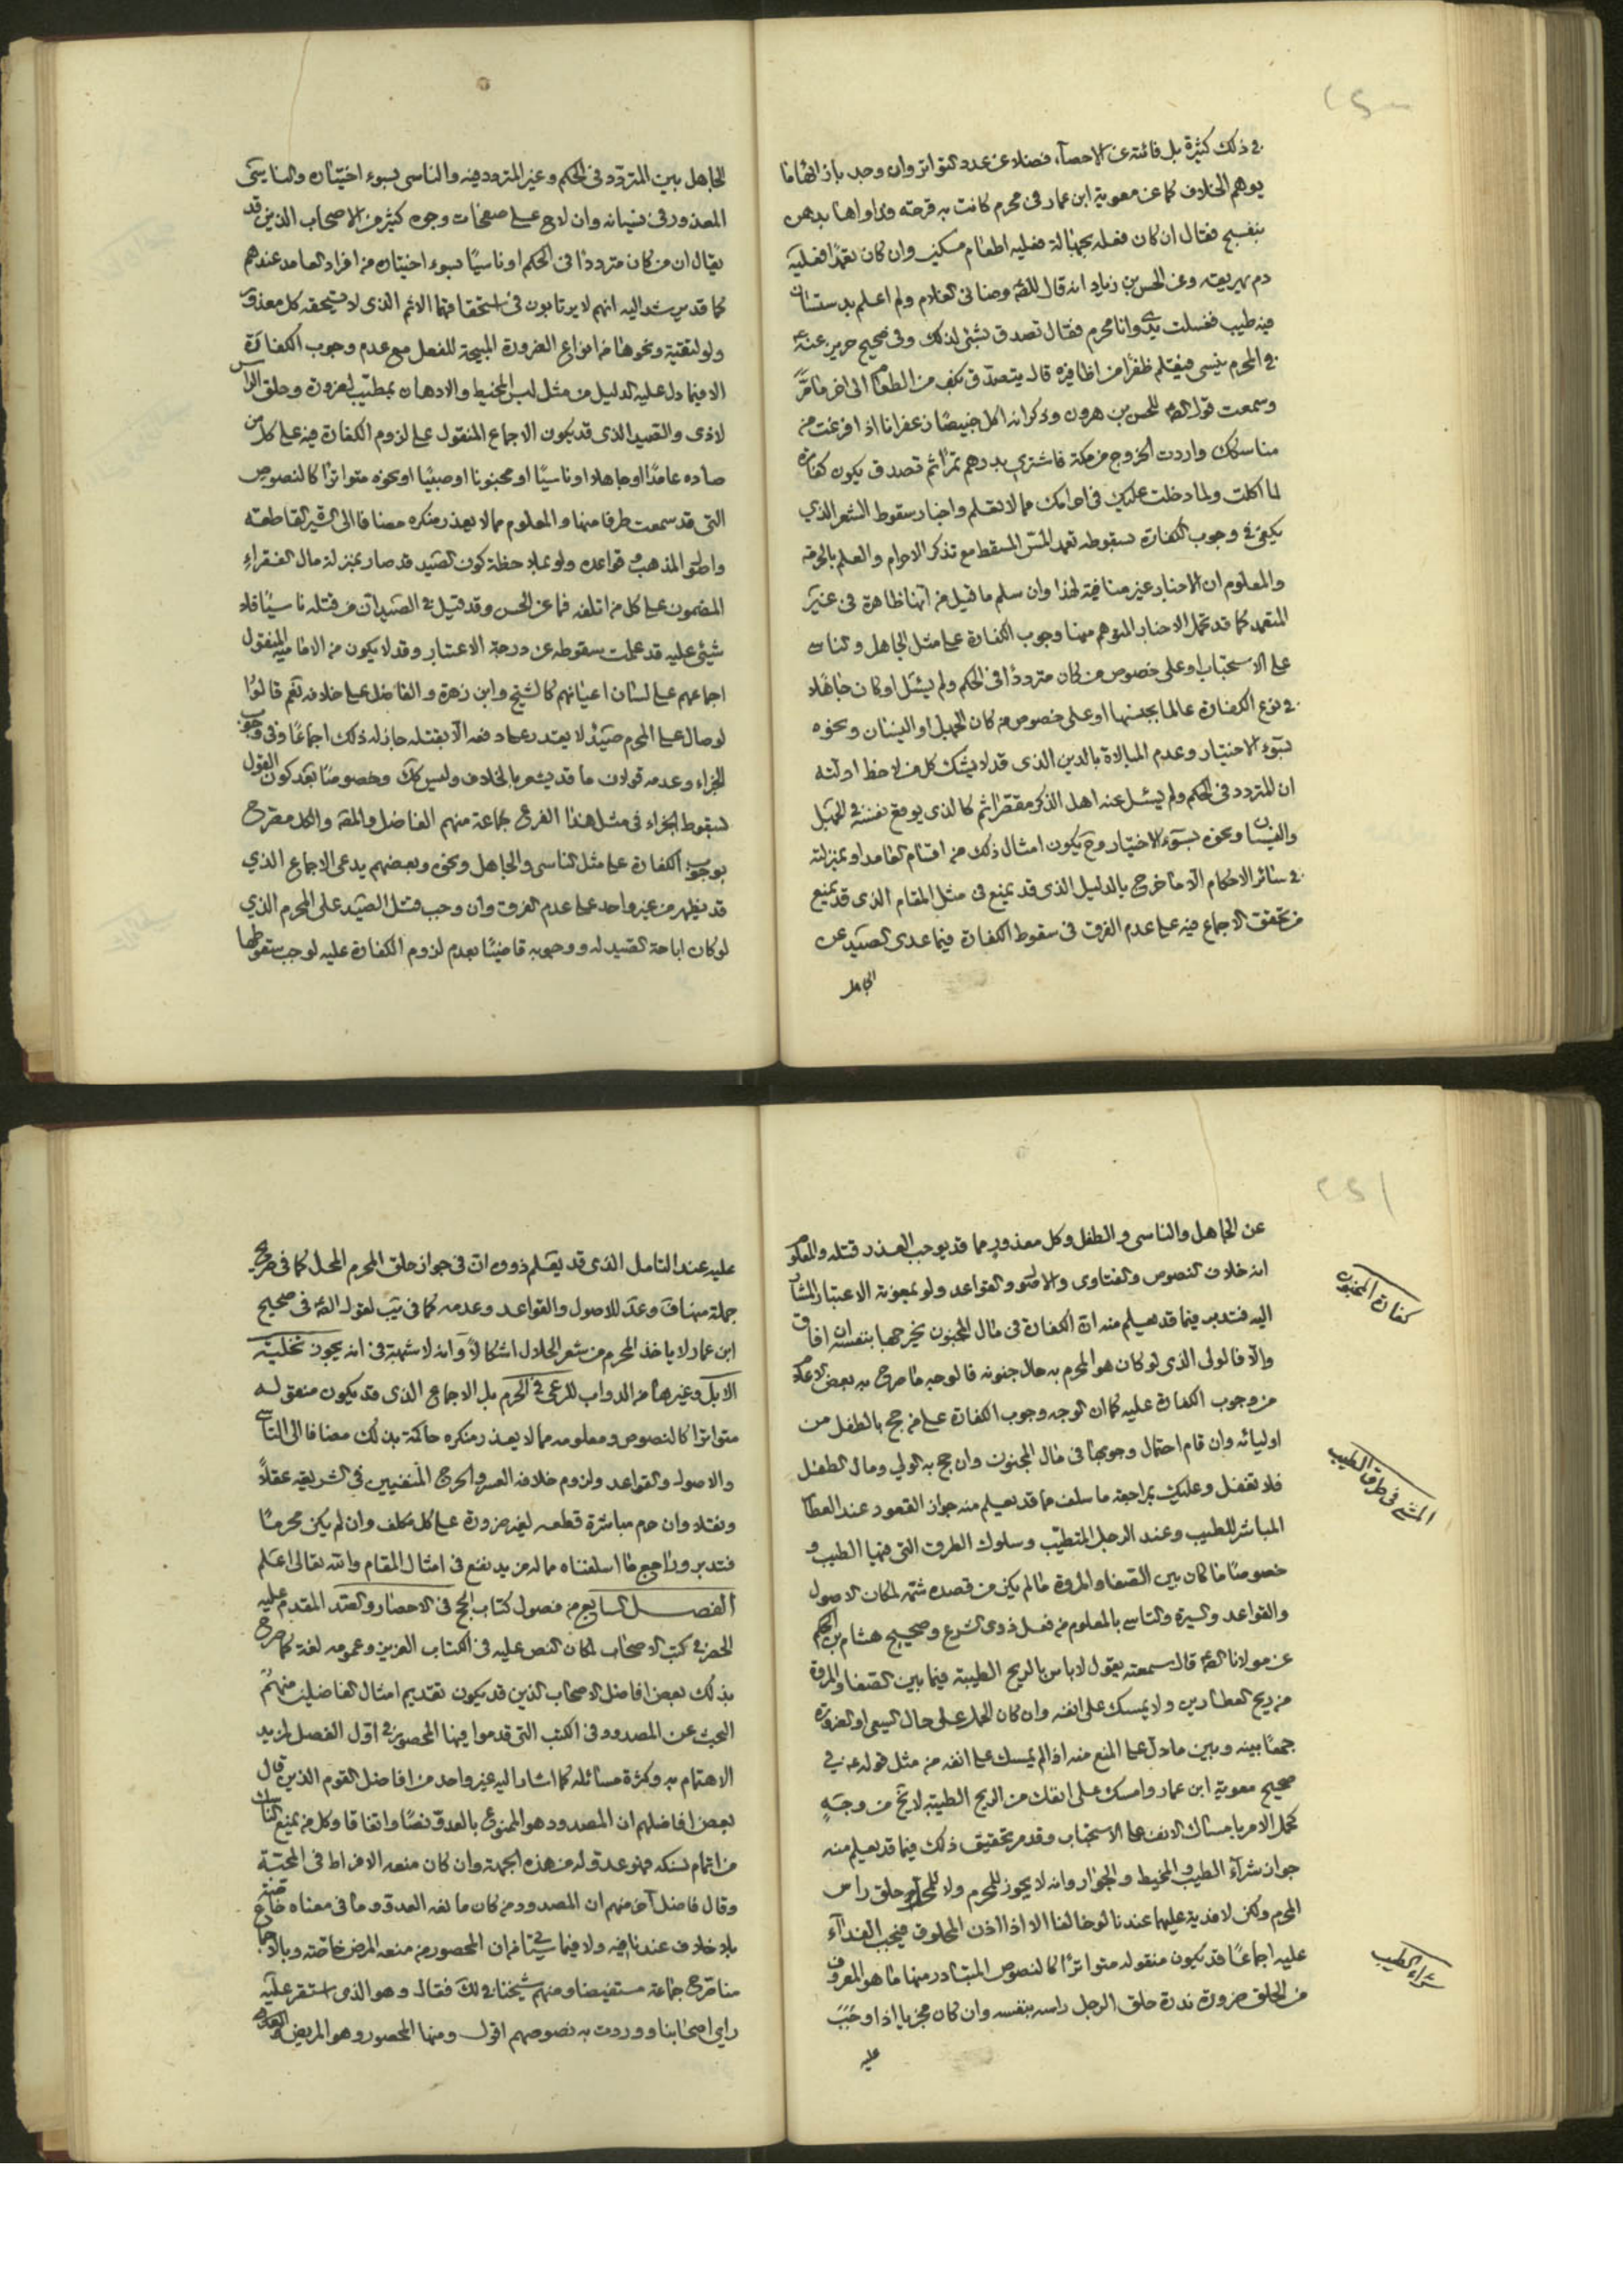 في ذلك كثيرة بل فائتة عن الاحصاء فضلا عن عدد التواتر وان وجد بازائها ما
يوهم الخلاف كما عن معوية ابن عمار في محرم كانت به قرحته وداواها بدهن
بنفسج فقال ان كان فعله بجهالة فعليه اطعام مسكين وان كان تعمدا فعليه
دم يهريقه وعن الحسن بن زياد انه قال للصه وضاني الغلام ولم اعلم بدستشان
فيه طيب فغسلت يدي وانا محرم فقال تصدق بشئ لذلك وفي صحيح حريز عنه ع
في المحرم ينسى فيقلم ظفرا من اظافيره قال يتصدق بكف من الطعام الى اخر ما مر
وسمعت قول الصه للحسن بن هرون وذكر انه اكل خبيصا زعفرانا اذا فرغت من
مناسكك واردت الخروج من مكة فاشتري بدرهم تمرا ثم تصدق يكون كفارة
لما اكلت ولما دخلت عليك في احرامك مما لا تعلم واخبار سقوط الشعر الذي
يكفى في وجوب الكفارة بسقوطه تعمد المس المسقط مع تذكر الاحرام والعلم بالحرمة
والمعلوم ان الاخبار غير منافية لهذا وان سلم ما قيل من انها ظاهرة في غير
المتعمد كما قد تحمل الاخبار المتوهم منها وجوب الكفارة على مثل الجاهل والناسي
على الاستحباب او على خصوص من كان مترددا في الحكم ولم يسئل او كان جاهلا
في نوع الكفارة عالما بجنسها او على خصوص من كان الجهل او النسيان ونحوه
بسوء الاختيار وعدم المبالاة بالدين الذي قد لا يشك كل من لاحظ ادلته
ان المتردد في الحكم ولم يسئل عنه اهل الذكر مقصر اثم كالذي يوقع نفسه في الجهل
والنسيان ونحوه بسوء الاختيار وح يكون امثال ذلك من اقسام العامد او بمنزلته
في سائر الاحكام الا ما خرج بالدليل الذي قد يمنع في مثل المقام الذي قد يمنع
من تحقق الاجماع فيه على عدم الفرق في سقوط الكفارة فيما عدى الصيد عن
الجاهل
الجاهل بين المتردد في الحكم وغير المتردد فيه والناسى بسوء اختيان والناسى
المعذور في نسيانه وان لاح على صفحات وجوه كثير من الاصحاب الذين قد
يقال ان من كان مترددا في الحكم او ناسيا بسوء اختيان من افراد العامد عندهم
كما قد يرشد اليه انهم لا يرتابون في استحقاقهما الاثم الذي لا يستحقه كل معذور
ولو لتقية ونحوها من انواع الضرورة المبيحة للفعل مع عدم وجوب الكفارة
الا فيما دل عليه الدليل من مثل لبس المخيط والادهان بمطيب لضرورة وحلق الراس
لاذى والصيد الذي قد يكون الاجماع المنقول على لزوم الكفارة فيه على كل من
صاده عامدا او جاهلا او ناسيا او مجنونا او صبيا او نحوه متواترا كالنصوص
التي قد سمعت طرفا منها والمعلوم مما لا يعذر منكره مضافا الى السير القاطعة
واصول المذهب وقواعده ولو بملاحظة كون الصيد قد صار بمنزلة مال الفقراء
المضمون على كل من اتلفه فما عن الحسن وقد قيل في الصيد ان من قتله ناسيا فلا
شئ عليه قد علمت سقوطه عن درجة الاعتبار وقد لا يكون من الامامية المنقول
اجماعهم على لسان اعيانهم كالشيخ وابن زهرة والفاضل على خلافه نعم قالوا
لو صال على المحرم صيد لا يقتدر على دفعه الا بقتله جاز له ذلك اجماعا وفي وجوب
الجزاء وعدمه قولان ما قد يشعر بالخلاف وليس كك وخصوصا بعد كون القول
بسقوط الجزاء في مثل هذا الفرع لجماعة منهم الفاضل والمقه والكل مصرح
بوجوب الكفارة على مثل الناسى والجاهل ونحوه وبعضهم يدعى الاجماع الذي
قد يظهر من غير واحد على عدم الفرق وان وجب قتل الصيد على المحرم الذي
لو كان اباحة الصيد له ووجوبه قاضيا بعدم لزوم الكفارة عليه لوجب سقوطها
عن الجاهل والناسى والطفل وكل معذور مما قد يوجب العذر قتله والمعلوم
انه خلاف النصوص والفتاوى والاصول والقواعد ولو بمعونة الاعتبار المشار
اليه فتدبر فيما قد يعلم منه ان الكفارة في مال المجنون يخرجها بنفسه ان افاق
والا فالولى الذي لو كان هو المحرم به حال جنونه فالوجه ما صرح به بعض الاعلام
من وجوب الكفارة عليه كما ان الوجه وجوب الكفارة على من حج بالطفل من
اوليائه وان قام احتمال وجوبها في مال المجنون وان حج به الولي ومال الطفل
فلا تغفل وعليك بمراجعة ما سلف مما قد يعلم منه جواز القعود عند العطار
المباشر للطيب وعند الرجل المتطيب وسلوك الطرق التي فيها الطيب و
خصوصا ما كان بين الصفا والمروة ما لم يكن من قصده شمه لمكان الاصول
والقواعد والسيرة والتاسي بالمعلوم من فعل ذوى الشرع وصحيح هشام بن الحكم
عن مولانا الصه قال سمعته يقول لا باس بالريح الطيبة فيما بين الصفا والمروة
من ريح العطارين ولا يمسك على انفه وان كان الحمل على حال السعى او الضرورة
جمعا بينه وبين ما دل على المنع منه اذا لم يمسك على انفه من مثل قوله ع في
صحيح معوية ابن عمار وامسك على انفك من الريح الطيبة لا يخ من وجه
كحمل الامر بامساك الانف على الاستحباب وقد مر تحقيق ذلك فيما قد يعلم منه
جواز شرآء الطيب والمخيط والجوار وانه لا يجوز للمحرم ولا للمحل حلق راس
المحرم ولكن لا فدية عليهما عندنا لو خالفا الا اذا اذن المحلوق فيجب الفداء
عليه اجماعا قد يكون منقوله متواترا كالنصوص المتبادر منها ما هو المعروف
من الحلق ضرورة ندرة حلق الرجل راسه بنفسه وان كان مجزيا اذا وجب
عليه
كفارة المجنون
المشي في طرق الطيب
شراء الطيب
عليه عند التامل الذي قد يعلم ذووه ان في جواز حلق المحرم المحل كما في صريح
جملة منها ف وعدمه للاصول والقواعد وعدمه كما في يب لقول الصه في صحيح
ابن عمار لا ياخذ المحرم من شعر الحلال اشكالا وانه لا شبهة في انه يجوز تخلية
الابل وغيرها من الدواب للرعى في الحرم بل الاجماع الذي قد يكون منقوله
متواترا كالنصوص ومعلومه مما لا يعذر منكره حاكمة بذلك مضافا الى التاسي
والاصول والقواعد ولزوم خلافه العسر والحرج المنفيين في الشريعة عقلا
ونقلا وان حرم مباشرة قطعه لغير ضرورة على كل مكلف وان لم يكن محرما
فتدبر وراجع ما اسلفناه ماله مزيد نفع في امثال المقام والله تعالى اعلم
الفصل السابع من فصول كتاب الحج في الاحصار والصد المقدم عليه
الحصر في كتب الاصحاب لمكان النص عليه في الكتاب العزيز وعمومه لغة كما صرح
بذلك بعض افاضل الاصحاب الذين قد يكون تقديم امثال الفاضلين منهم
البحث عن المصدود في الكتب التي قدموا فيها المحصور في اول الفصل لمزيد
الاهتمام به وكثرة مسائله كما اشار اليه غير واحد من افاضل القوم الذين قال
بعض افاضلهم ان المصدود هو الممنوع بالعدو نصا واتفاقا وكل من يمنع الناس
من اتمام نسكه فهو عدو له من هذه الجهة وان كان منعه الافراط في المحبة
وقال فاضل آخر منهم ان المصدود من كان مانعه العدو وما في معناه خاصة
بلا خلاف عندنا فيه ولا فيما سيتي من ان المحصور من منعه المرض خاصة وبالاجماع
منا صرح جماعة مستفيضا ومنهم شيخنا في لك فقال وهو الذي استقر عليه
راى اصحابنا ووردت به نصوصهم اقول ومنها المحصور وهو المريض